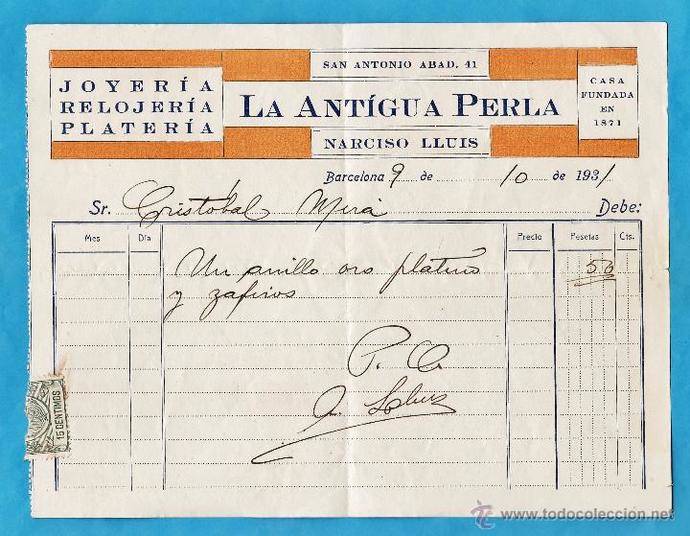 SAN ANTONIO ABAD, 41
JOYERÍA
RELOJERÍA
PLATERÍA
LA ANTÍGUA PERLA
CASA
FUNDADA
EN
1871
NARCISO LLUIS
Barcelona 9 de 10 de 1931
Sr. Cristóbal Mirá Debe:
Mes Día Precio Pesetas Cts.
Un anillo oro platino 50
y zafiros
P. O.
15 CENTIMOS
www.todocoleccion.net